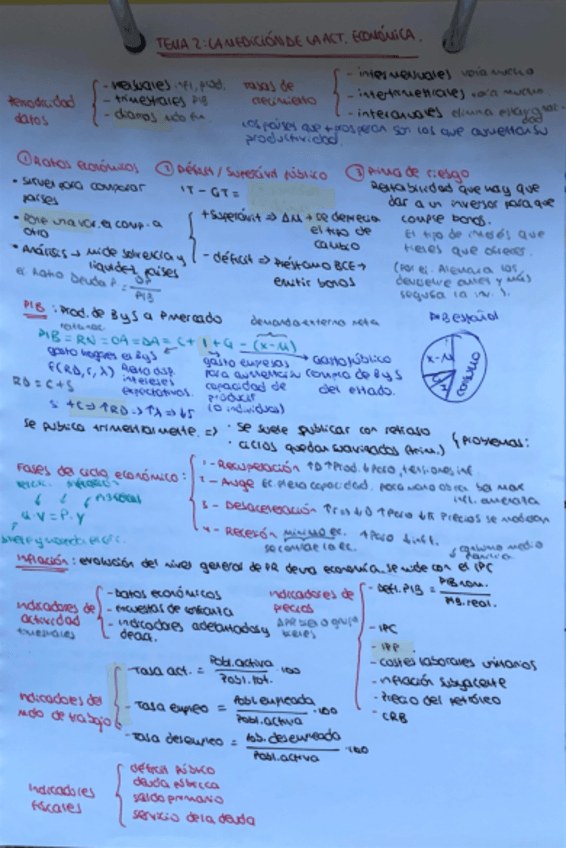 TEMA 2: LA MEDICIÓN DE LA ACT. ECONÓMICA.
Periodicidad datos
- mensuales
- trimestrales PIB
- diarios
Tasas de crecimiento
- intermensuales varía mucho
- intertrimestrales varía mucho.
- interanuales elimina
Los países que + prosperan son los que aumentan su productividad.
① Ratios económicos
• Sirven para comparar países
• Pone una var. el comp. a otra
• Análisis → mide solvencia y liquidez países
el Ratio Deuda P = DP / PIB
② Déficit / Superávit público
IT - GT =
+ Superávit ⇒ ΔM + se deprecia el tipo de cambio
- déficit ⇒ Préstamo BCE + emitir bonos
③ Prima de riesgo
Rentabilidad que hay que dar a un inversor para que compre bonos.
El tipo de interés que tienes que ofrecer.
(Por ej. Alemania los
PIB: Prod. de B y S a P mercado
demanda externa neta
PIB = RN = OA = DA = C + I + G - (x-M)
gasto hogares en B y S
f(RD, r, λ)
RD = C + S
gasto empresas para aumentar su capacidad de producir (o individuos)
Gasto público
compra de B y S del estado.
PIB español
x-M
CONSUMO
Se publica trimestralmente. ⇒
• Se suele publicar con retraso
• ciclos quedan suavizados (trim.)
(problemas:
Fases del ciclo económico:
1 - Recuperación ↑D ↑Prod. ↓Paro, tensiones inf.
2 - Auge Ec. plena capacidad.
3 - Desaceleración ↑Paro Precios se moderan
4 - Recesión mínimo ec. ↑Paro ↓inf.
se contrae la ec.
M V = P. Y
Inflación: evolución del nivel general de PR de una economía. se mide con el IPC
Indicadores de actividad
trimestrales
- Datos económicos
- encuestas de confianza
- indicadores adelantados y desact.
Indicadores de precios
- defl. PIB = PIB nom. / PIB. real.
- IPC
- IPP
- costes laborales unitarios
- inflación subyacente
- Precio del petróleo
- CRB
Indicadores de mdo de trabajo
- Tasa act. = Pobl. activa / Pobl. tot. · 100
- Tasa empleo = Pobl. empleada / Pobl. activa · 100
- Tasa desempleo = Pob. desempleada / Pobl. activa · 100
Indicadores fiscales
déficit público
deuda pública
saldo primario
servicio de la deuda